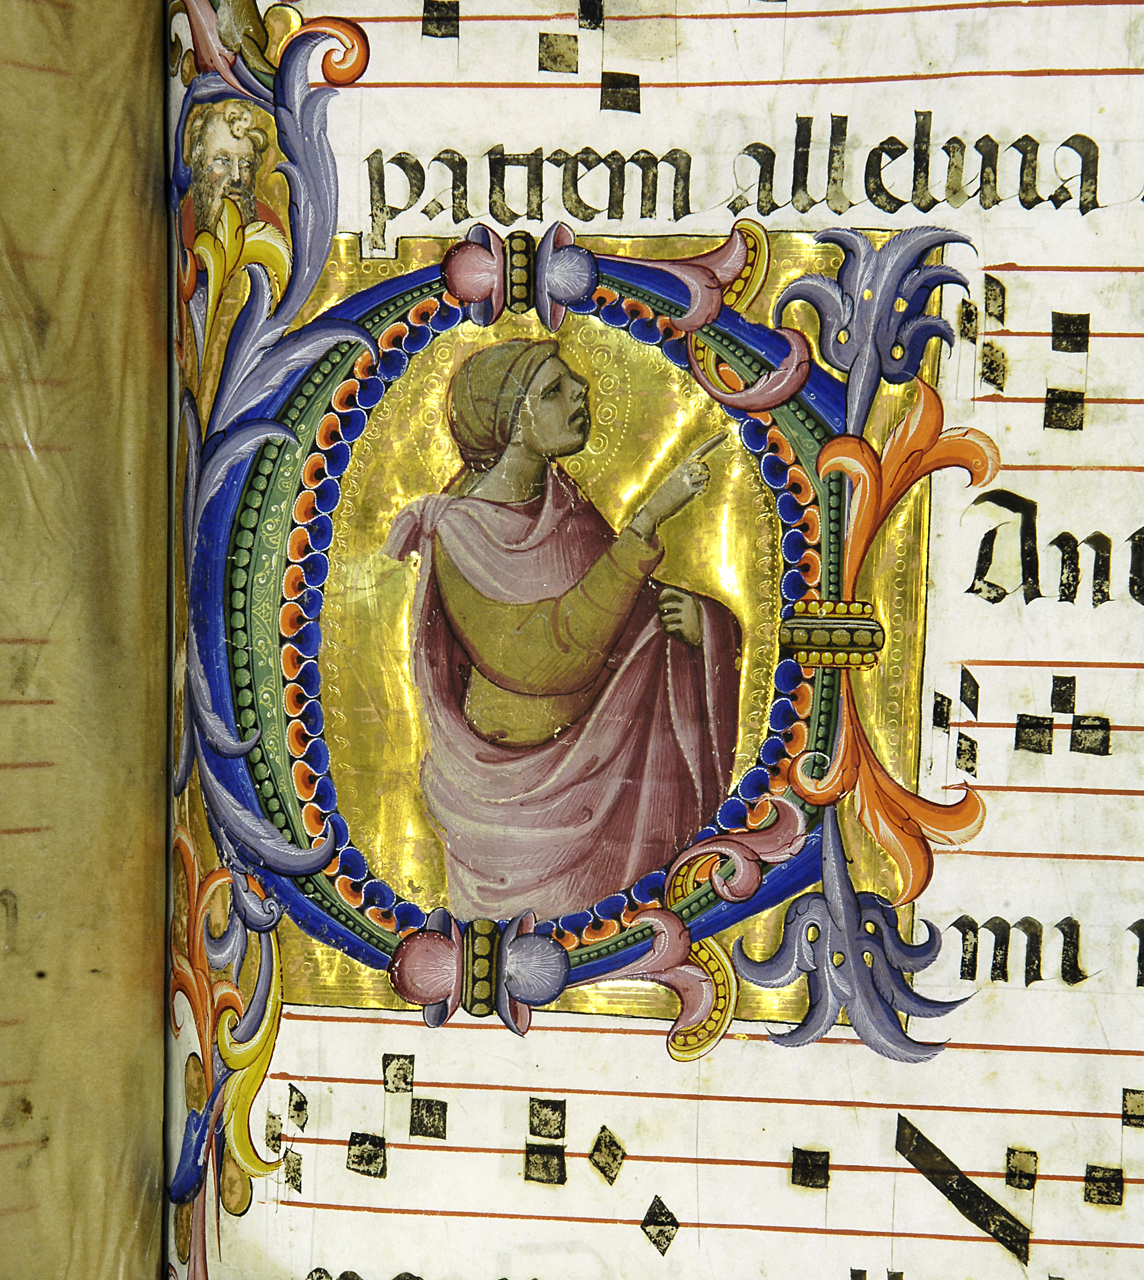 patrem alleluia
Ant
em